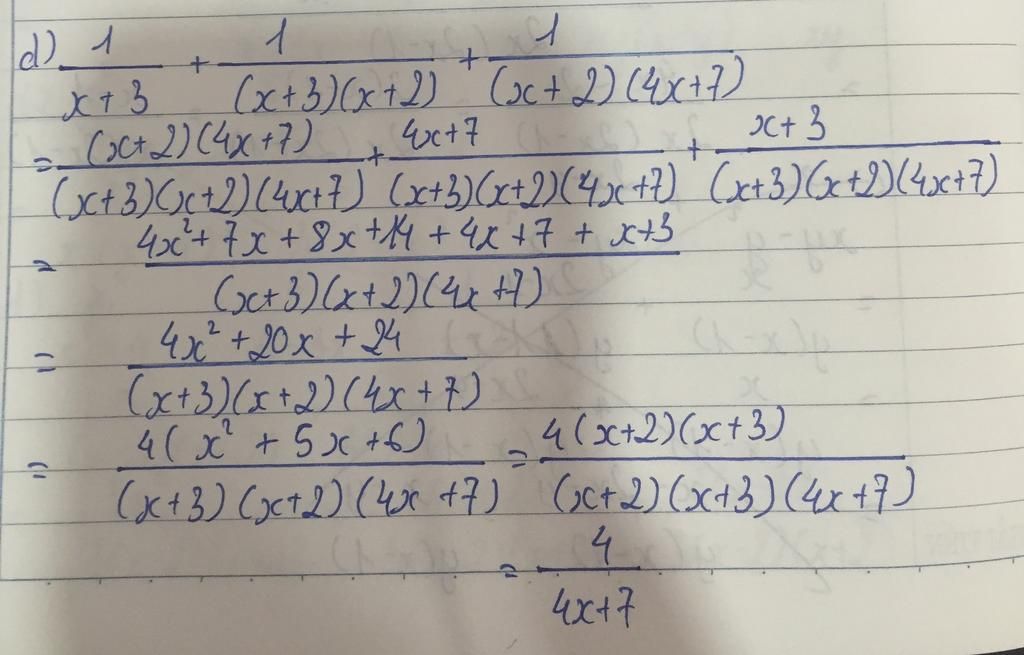 d) 1/(x+3) + 1/((x+3)(x+2)) + 1/((x+2)(4x+7))
= ((x+2)(4x+7))/((x+3)(x+2)(4x+7)) + (4x+7)/((x+3)(x+2)(4x+7)) + (x+3)/((x+3)(x+2)(4x+7))
= (4x²+7x+8x+14+4x+7+x+3)/((x+3)(x+2)(4x+7))
= (4x²+20x+24)/((x+3)(x+2)(4x+7))
= (4(x²+5x+6))/((x+3)(x+2)(4x+7)) = (4(x+2)(x+3))/((x+2)(x+3)(4x+7))
= 4/(4x+7)